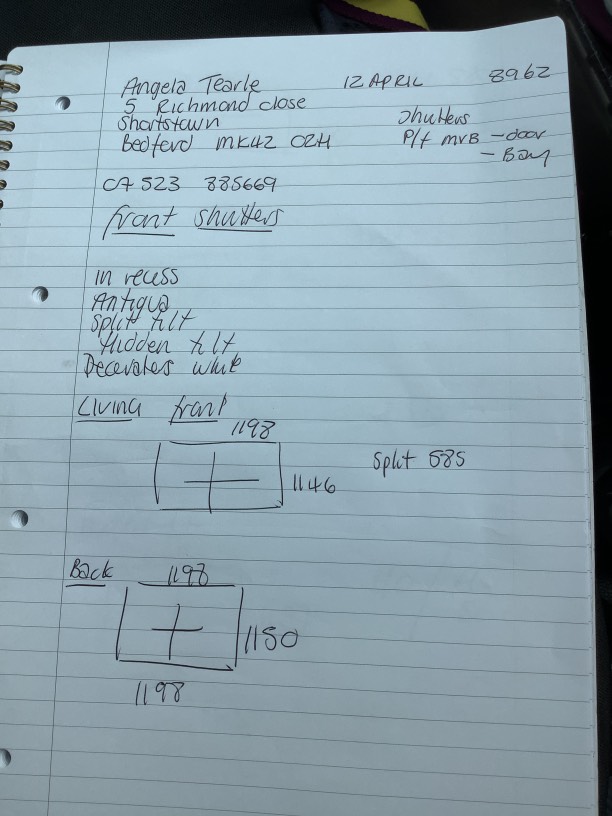 Angela Tearle 12 APRIL 8962
5 Richmond close
Shortstown Shutters
Bedford MK42 0ZH P/f MVB - door
- Bay
07523 885669
front shutters
In recess
Antigua
Split tilt
Hidden tilt
Decorators white
Living front
1198
Split 585
1146
Back 1198
1150
1198